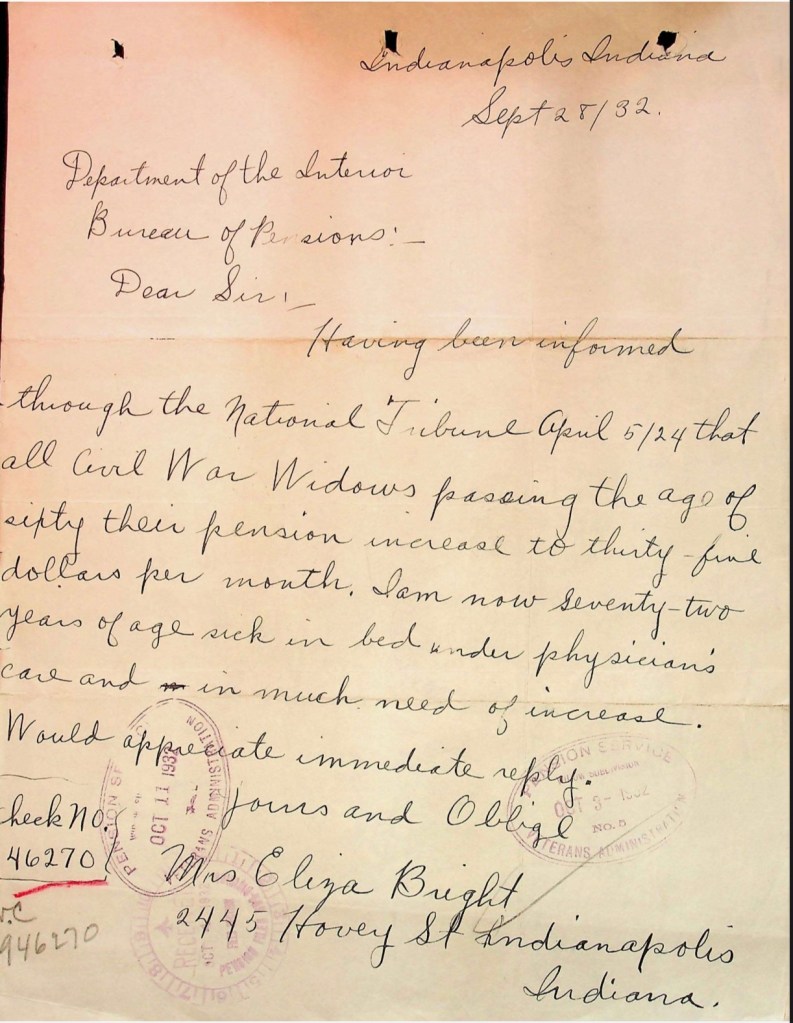 Indianapolis Indiana
Sept 28/32.
Department of the Interior
Bureau of Pensions:-
Dear Sir:-
Having been informed
through the National Tribune April 5/24 that
all Civil War Widows passing the age of
sixty their pension increase to thirty-five
dollars per month. I am now seventy-two
years of age sick in bed under physician's
care and in much need of increase.
Would appreciate immediate reply.
Yours and Oblige
heck No.
46270
Mrs Eliza Bright
2445 Hovey St Indianapolis
Indiana.
W.C
946270
PENSION SERVICE
OCT 3- 1932
NO. 5
VETERANS ADMINISTRATION
PENSION SE
OCT 11 1932
VETERANS ADMINISTRATION